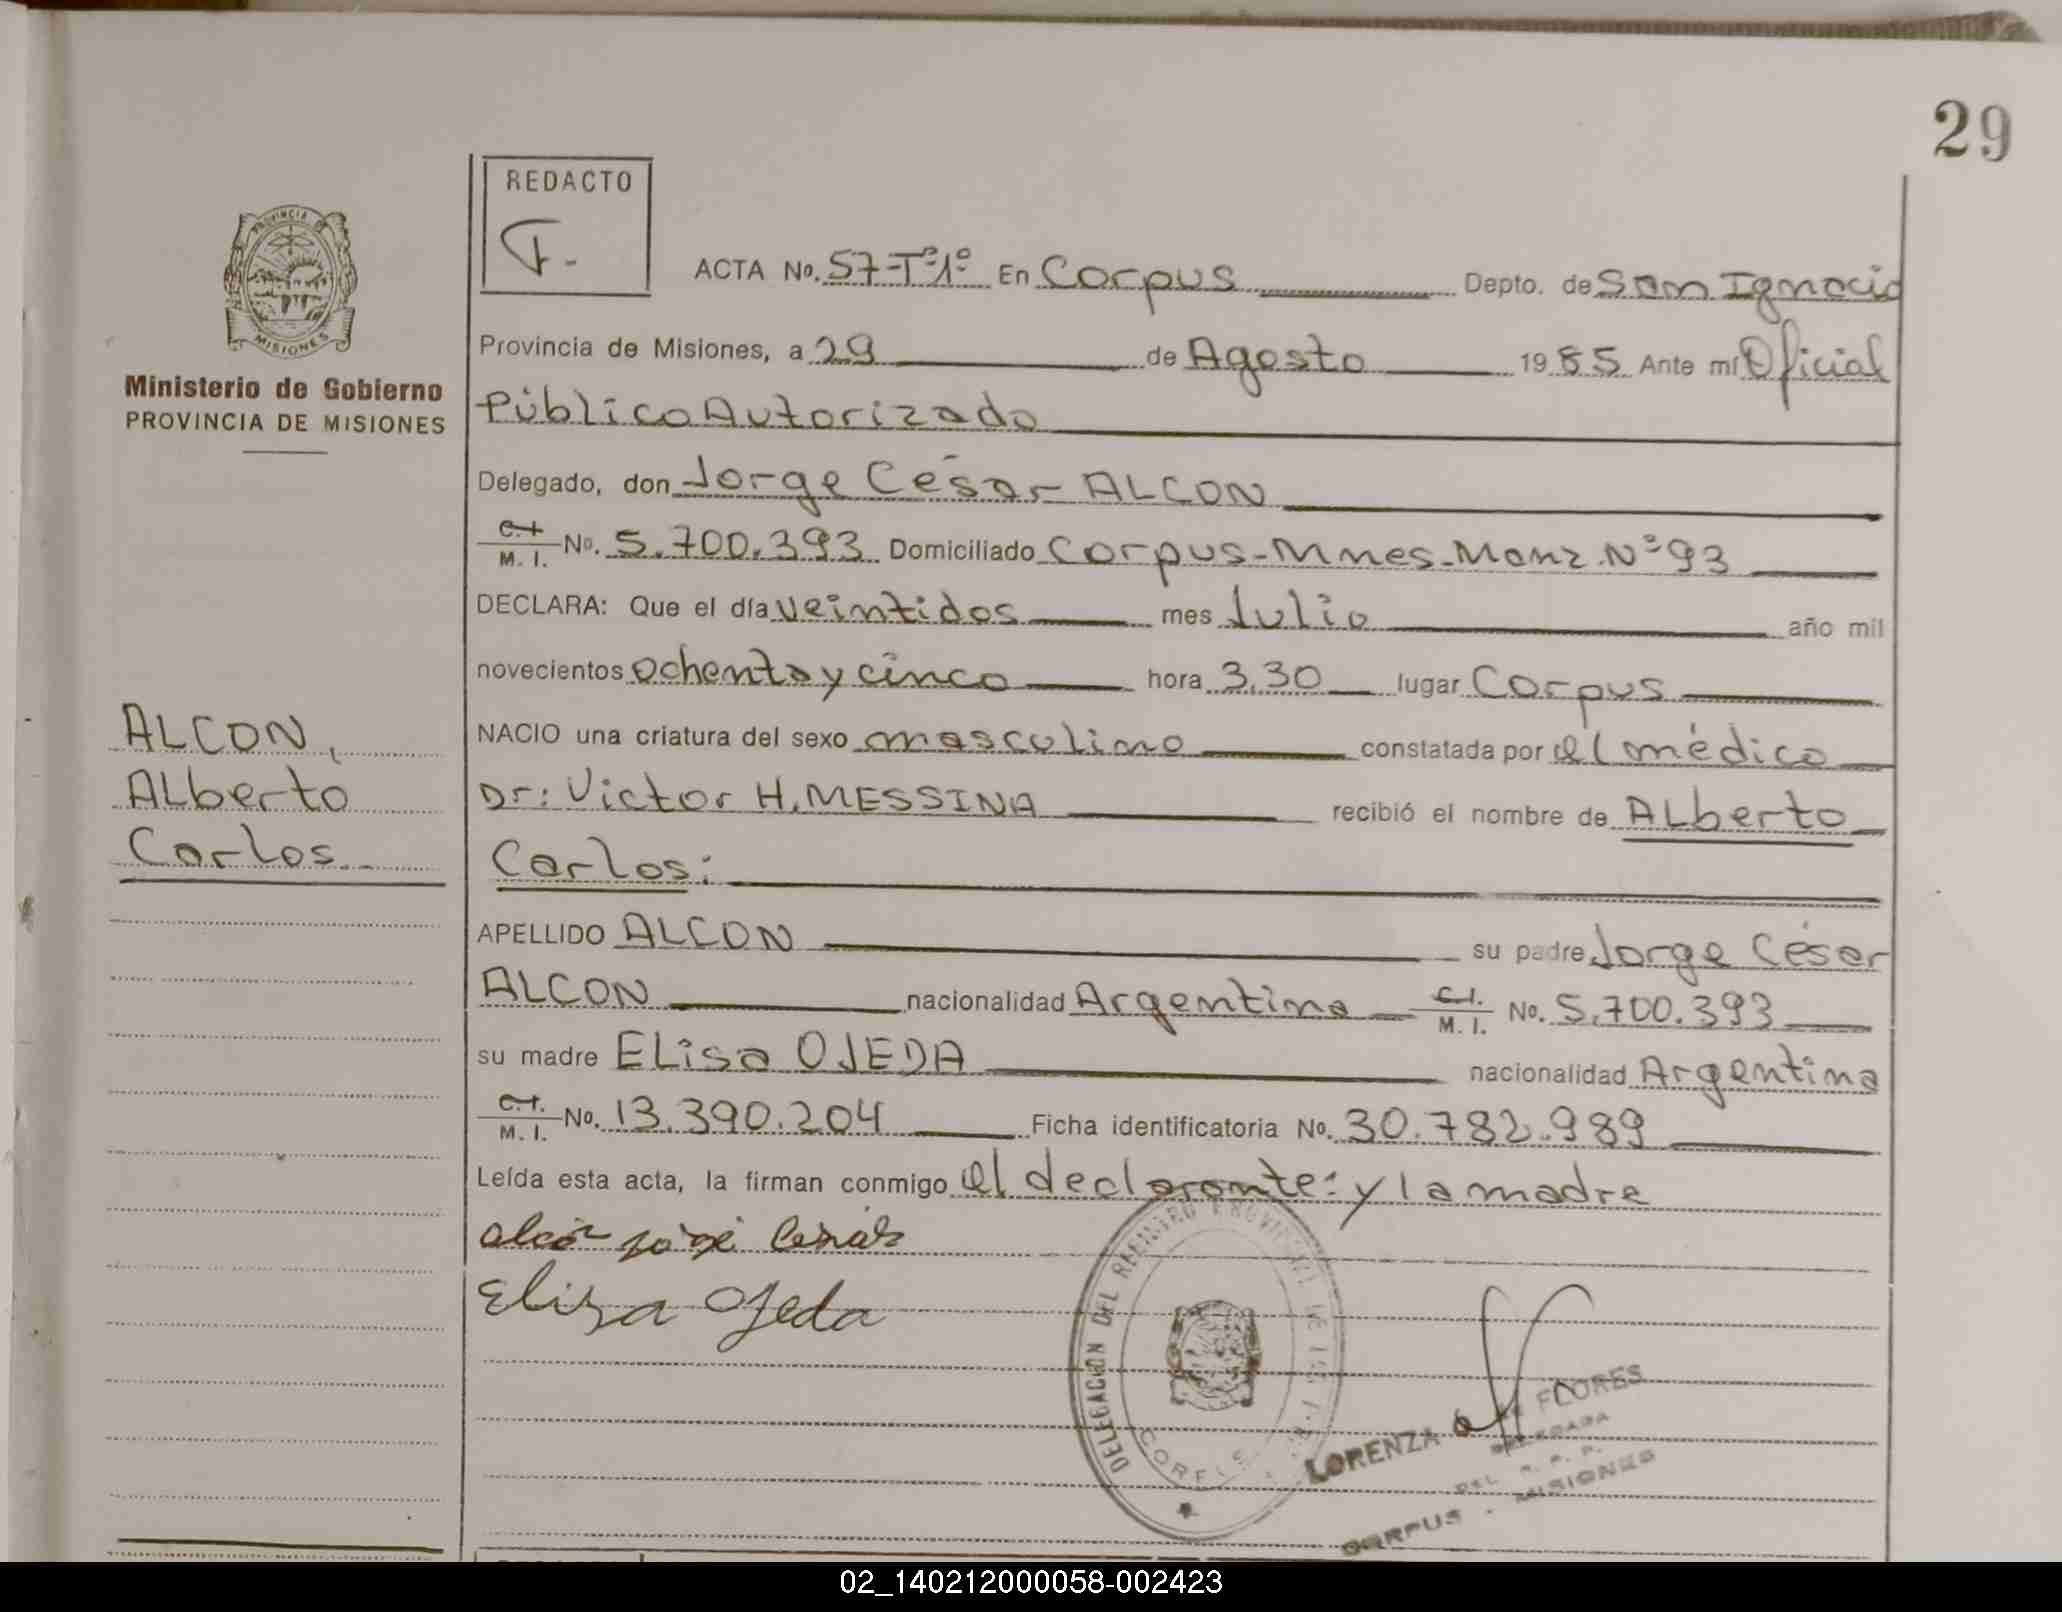 29
REDACTO
F.-
PROVINCIA DE
MISIONES
Ministerio de Gobierno
PROVINCIA DE MISIONES
ACTA No. 57-Tº1º En Corpus Depto. de San Ignacio
Provincia de Misiones, a 29 de Agosto 1985 Ante mí Oficial
Público Autorizado
Delegado, don Jorge César ALCON
C.I. / M. I. No. 5.700.393 Domiciliado Corpus-Mnes-Manz.Nº93
DECLARA: Que el día veintidos mes Julio año mil
novecientos ochenta y cinco hora 3,30 lugar Corpus
NACIO una criatura del sexo masculino constatada por el médico
Dr: Victor H. MESSINA recibió el nombre de ALberto
Carlos:
APELLIDO ALCON su padre Jorge César
ALCON nacionalidad Argentina C.I. / M. I. No. 5.700.393
su madre ELisa OJEDA nacionalidad Argentina
C.I. / M. I. No. 13.390.204 Ficha identificatoria No. 30.782.989
Leída esta acta, la firman conmigo el declarante: y la madre
ALCON,
ALberto
Carlos.-
alcon jorge Cesar
Elisa Ojeda
DELEGACION DEL REGISTRO PROVINCIAL DE LAS
CORPUS
LORENZA FLORES
DELEGADA
DEL R. P. P.
CORPUS - MISIONES
02_140212000058-002423